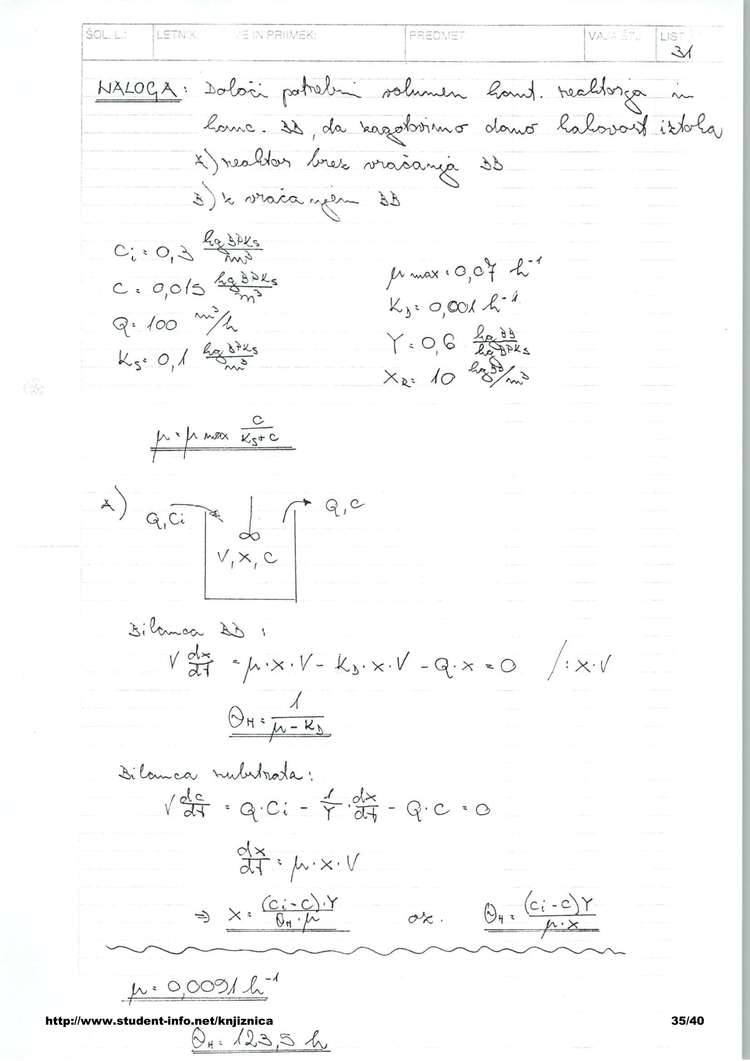 ŠOL. L.: LETNIK: IME IN PRIIMEK: PREDMET VAJA ŠT. LIST
31
NALOGA: Določi potrebni volumen kont. reaktorja in
konc. BB, da zagotovimo dano kakovost iztoka
A) reaktor brez vračanja BB
B) z vračanjem BB
Ci = 0,3 kg BPK5/m³
C = 0,015 kg BPK5/m³
Q = 100 m³/h
Ks = 0,1 kg BPK5/m³
μmax = 0,07 h⁻¹
KD = 0,001 h⁻¹
Y = 0,6 kg BB/kg BPK5
XR = 10 kg BB/m³
μ = μmax C/(Ks+C)
A)
Q, Ci
Q, C
V, X, C
Bilanca BB:
V dx/dt = μ·X·V − KD·X·V − Q·X = 0 /: X·V
ΘH = 1/(μ − KD)
Bilanca substrata:
V dc/dt = Q·Ci − 1/Y · dx/dt − Q·C = 0
dx/dt = μ·X·V
⇒ X = (Ci−C)·Y/(ΘH·μ) oz. ΘH = (Ci−C)Y/(μ·X)
μ = 0,0091 h⁻¹
http://www.student-info.net/knjiznica 35/40
ΘH = 123,5 h